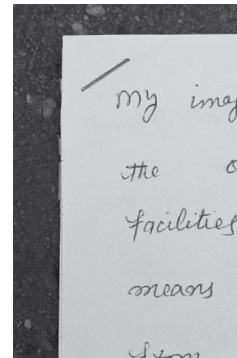 My imag
the
facilities
means